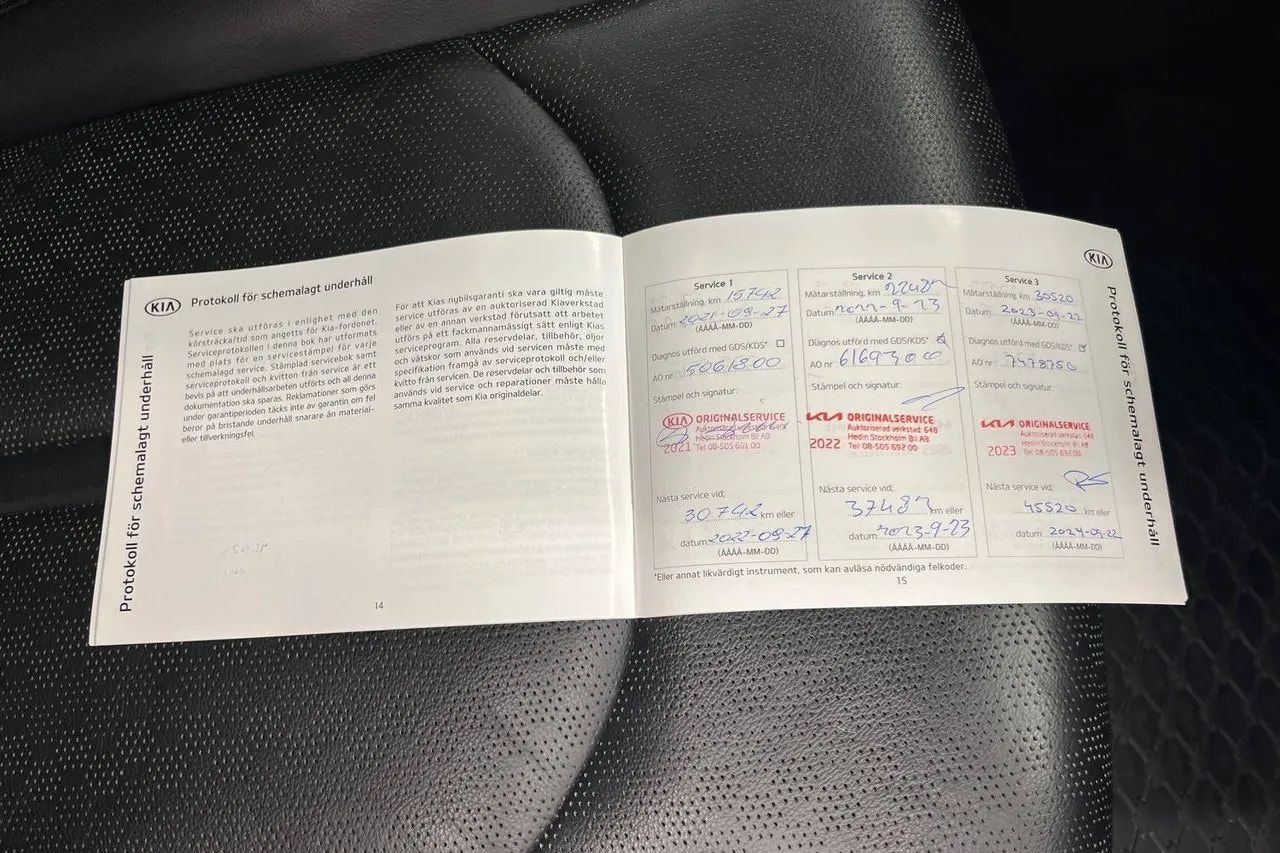 Protokoll för schemalagt underhåll
KIA
Protokoll för schemalagt underhåll
Service ska utföras i enlighet med den
körsträcka/tid som angetts för Kia-fordonet.
Serviceprotokollen i denna bok har utformats
med plats för en servicestämpel för varje
schemalagd service. Stämplad servicebok samt
serviceprotokoll och kvitton från service är ett
bevis på att underhållsarbeten utförts och all denna
dokumentation ska sparas. Reklamationer som görs
under garantiperioden täcks inte av garantin om fel
beror på bristande underhåll snarare än material-
eller tillverkningsfel.
För att Kias nybilsgaranti ska vara giltig måste
service utföras av en auktoriserad Kiaverkstad
eller av en annan verkstad förutsatt att arbetet
utförs på ett fackmannamässigt sätt enligt Kias
serviceprogram. Alla reservdelar, tillbehör, oljor
och vätskor som används vid servicen måste med
specifikation framgå av serviceprotokoll och/eller
kvitto från servicen. De reservdelar och tillbehör som
används vid service och reparationer måste hålla
samma kvalitet som Kia originaldelar.
14
KIA
Protokoll för schemalagt underhåll
Service 1
Mätarställning, km 15742
Datum 2021-09-27
(ÅÅÅÅ-MM-DD)
Diagnos utförd med GDS/KDS*
AO nr: 5061800
Stämpel och signatur:
KIA ORIGINALSERVICE
Hedin Stockholm Bil AB
2021 Tel 08-505 691 00
Nästa service vid;
30742 km eller
datum 2022-09-27
(ÅÅÅÅ-MM-DD)
Service 2
Mätarställning, km 22487
Datum 2022-9-23
(ÅÅÅÅ-MM-DD)
Diagnos utförd med GDS/KDS*
AO nr: 6169300
Stämpel och signatur:
KIA ORIGINALSERVICE
Auktoriserad verkstad: 648
Hedin Stockholm Bil AB
2022 Tel 08-505 692 00
Nästa service vid;
37487 km eller
datum 2023-9-23
(ÅÅÅÅ-MM-DD)
Service 3
Mätarställning, km 30520
Datum 2023-09-22
(ÅÅÅÅ-MM-DD)
Diagnos utförd med GDS/KDS*
AO nr: 7578750
Stämpel och signatur
KIA ORIGINALSERVICE
Auktoriserad verkstad: 648
Hedin Stockholm Bil AB
2023 Tel 08-505 692 00
Nästa service vid;
45520 km eller
datum 2024-09-22
(ÅÅÅÅ-MM-DD)
*Eller annat likvärdigt instrument, som kan avläsa nödvändiga felkoder.
15